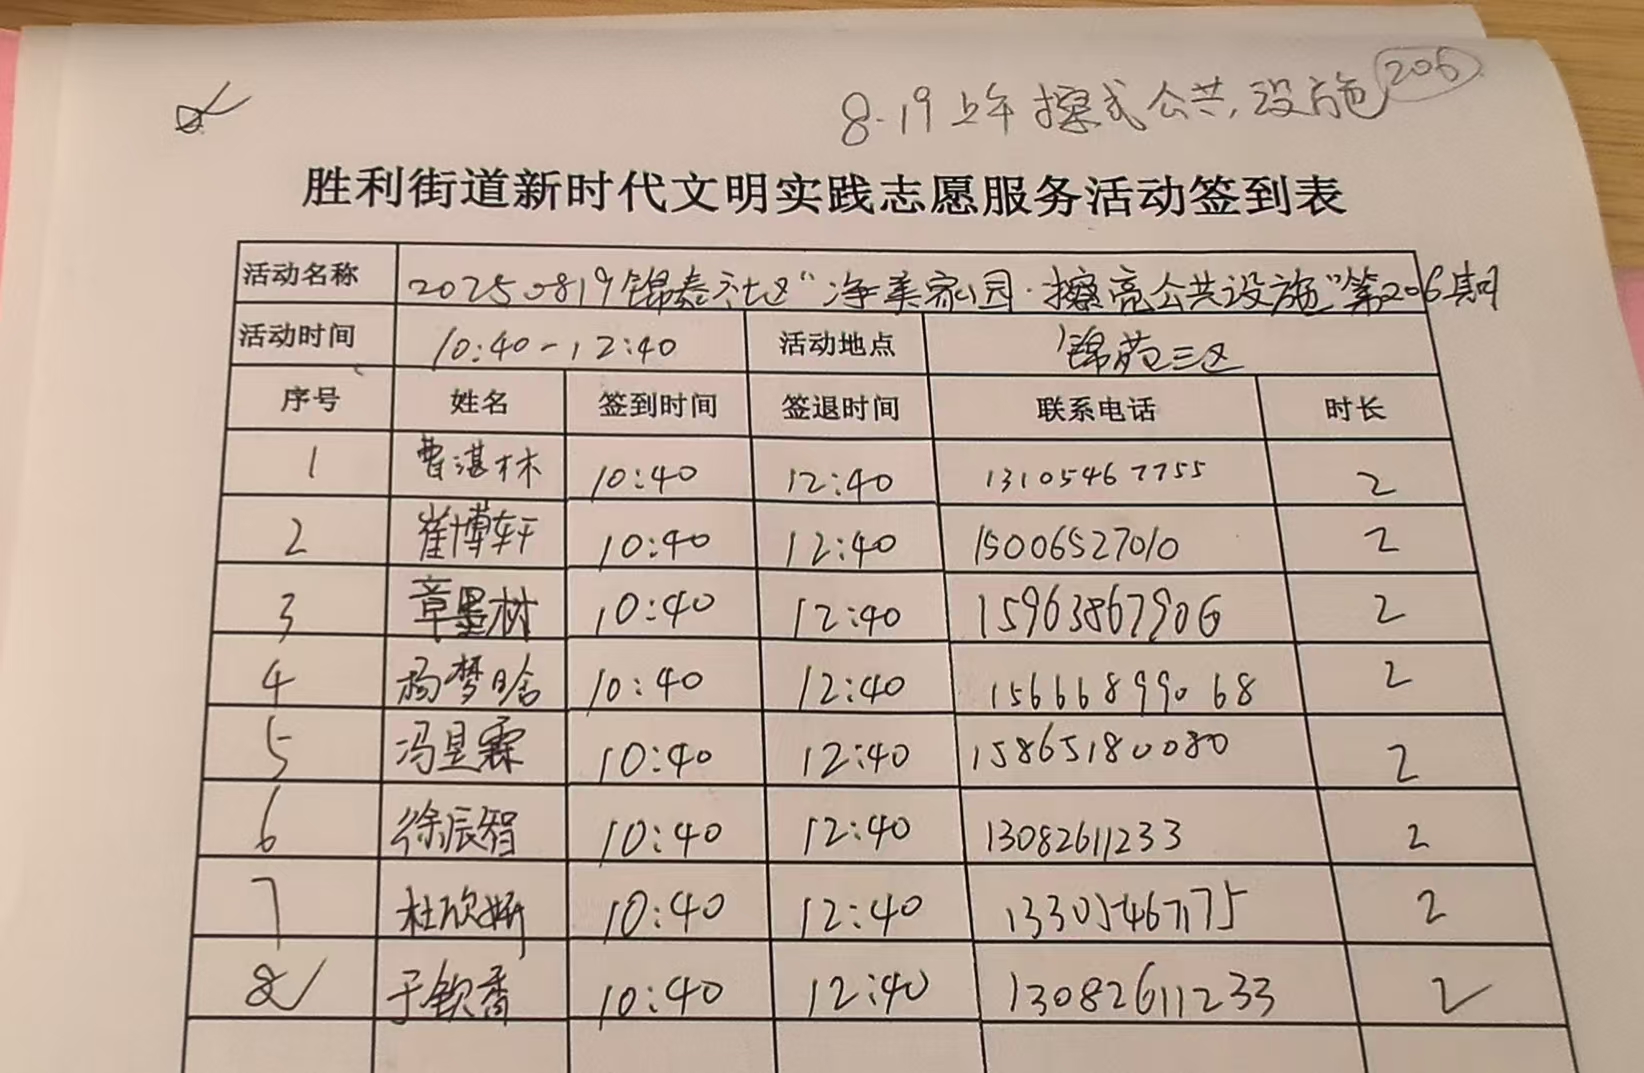 8.19上午擦式公共设施 206
胜利街道新时代文明实践志愿服务活动签到表
活动名称 20250819锦泰社区“净美家园·擦亮公共设施”第206期
活动时间 10:40-12:40 活动地点 锦苑三区
序号 姓名 签到时间 签退时间 联系电话 时长
1 曹湛林 10:40 12:40 13105467755 2
2 崔博轩 10:40 12:40 15006527010 2
3 章墨树 10:40 12:40 15963867906 2
4 杨梦晗 10:40 12:40 15666899068 2
5 冯昱霖 10:40 12:40 15865180080 2
6 徐辰智 10:40 12:40 13082611233 2
7 杜欣妍 10:40 12:40 13305467175 2
8 于钦香 10:40 12:40 13082611233 2